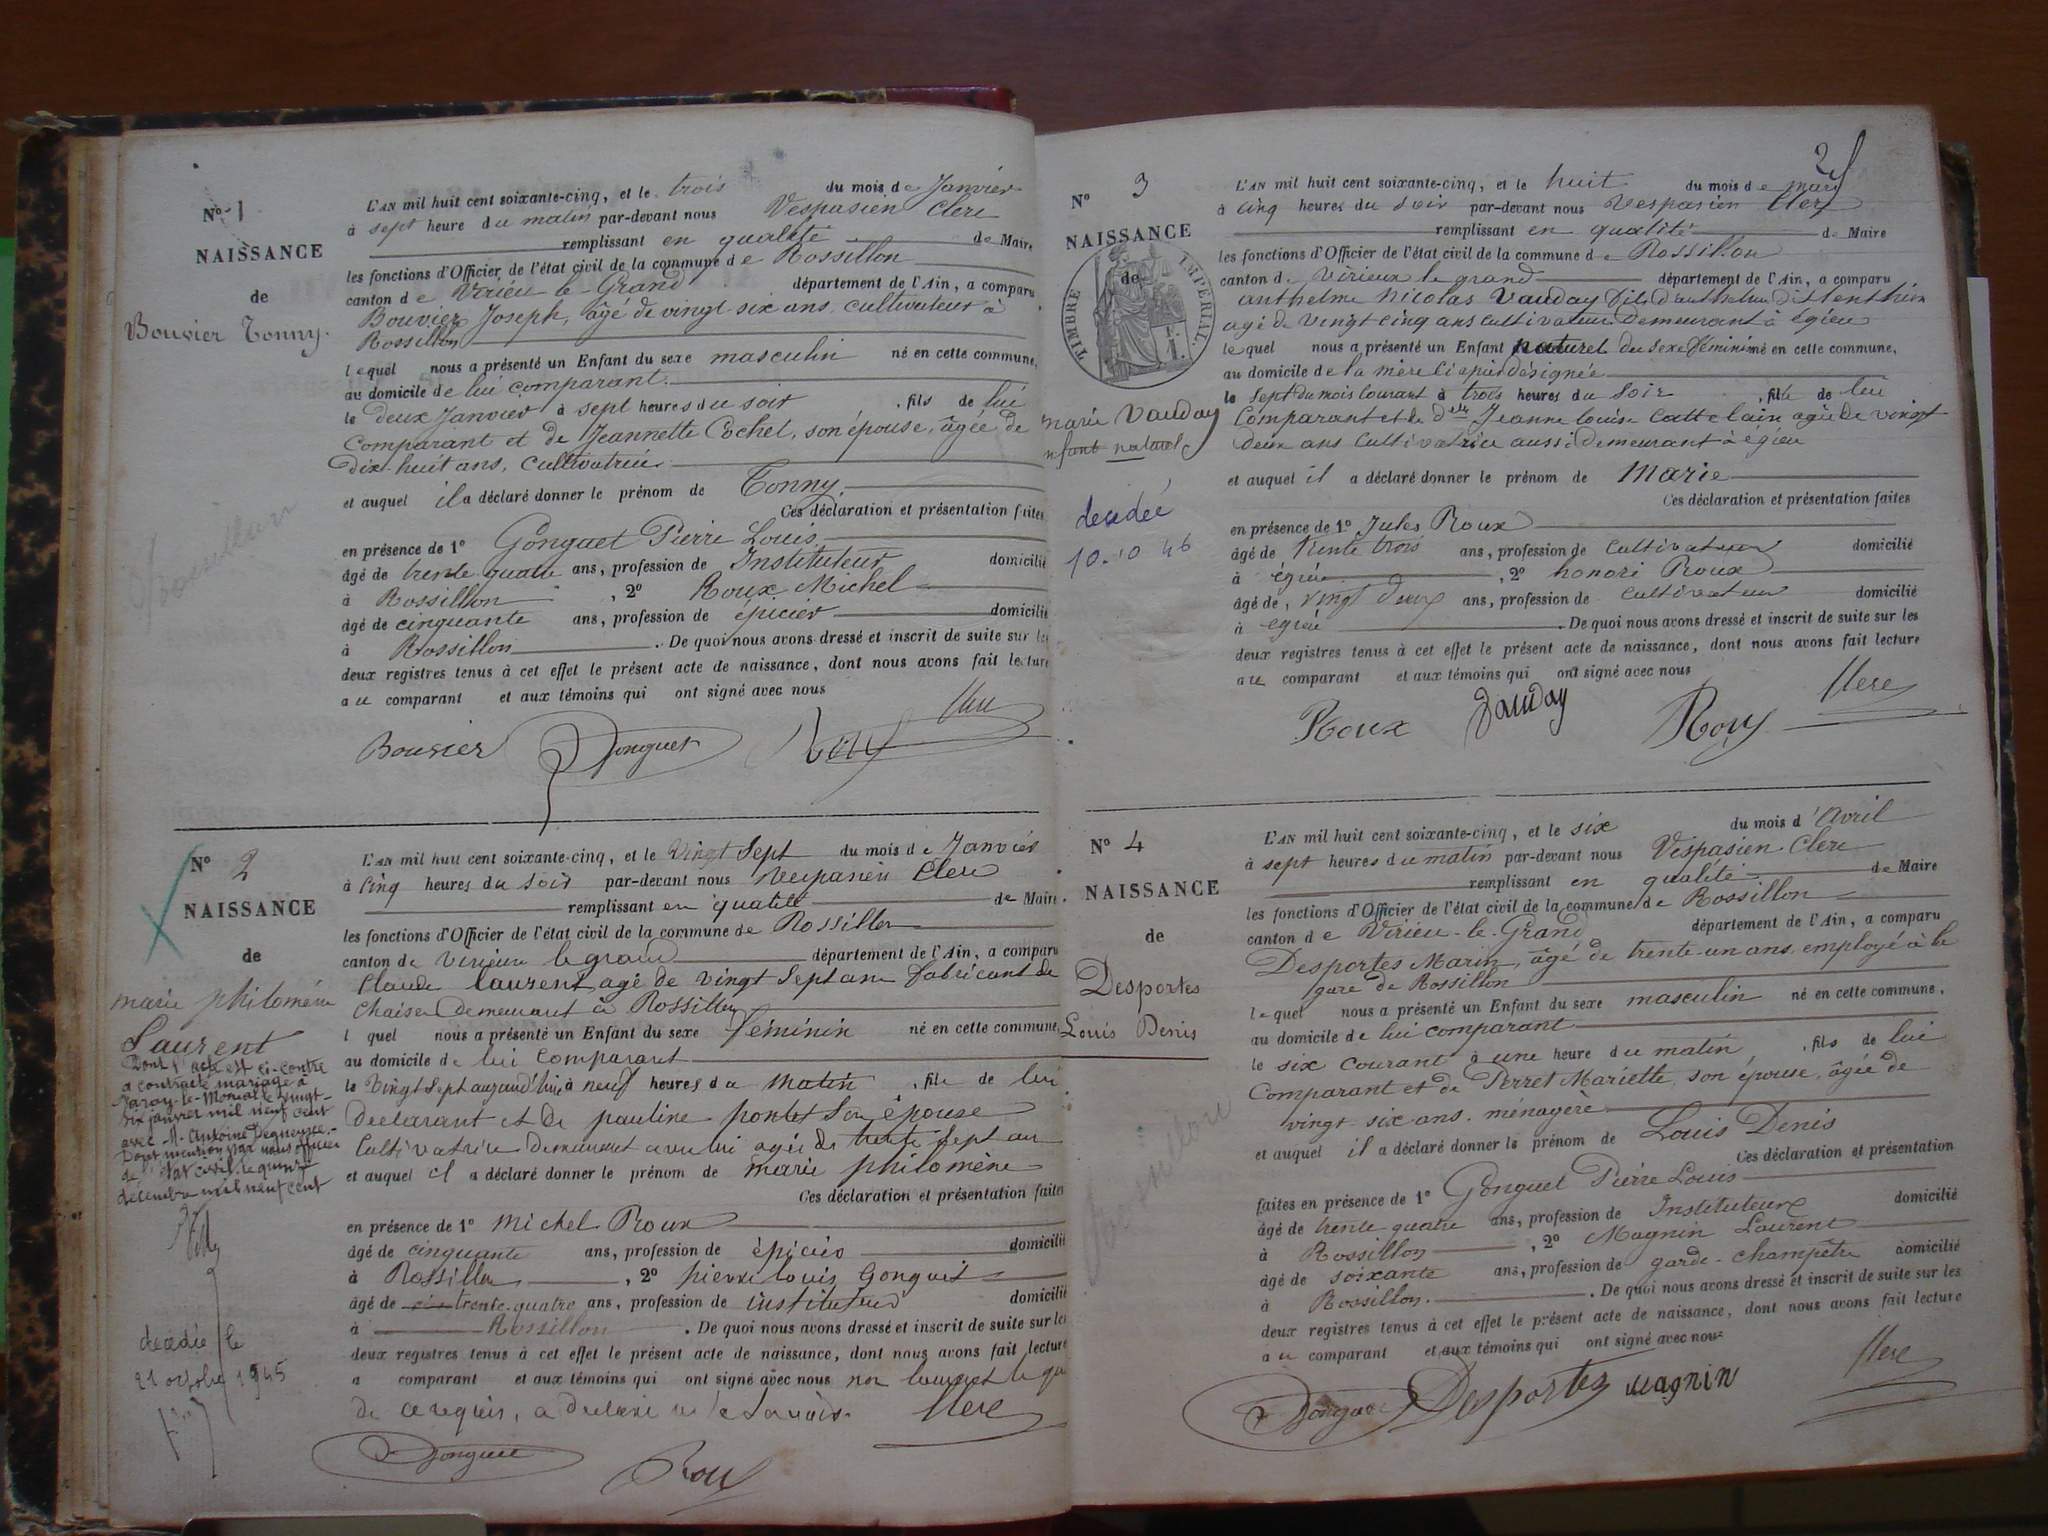 No 1
NAISSANCE
de
Bouvier Tonny.
L'AN mil huit cent soixante-cinq, et le trois du mois de Janvier
à sept heure du matin par-devant nous Vespasien Clerc
remplissant en qualité de Maire
les fonctions d'Officier de l'état civil de la commune de Rossillon
canton de Virieu-le-Grand département de l'Ain, a comparu
Bouvier Joseph, âgé de vingt six ans, cultivateur à
Rossillon
lequel nous a présenté un Enfant du sexe masculin né en cette commune,
au domicile de lui comparant.
le deux Janvier à sept heures du soir, fils de lui
Comparant et de Jeannette Cochet, son épouse, âgée de
dix-huit ans, cultivatrice
et auquel il a déclaré donner le prénom de Tonny.
Ces déclaration et présentation faites
en présence de 1º Gonguet Pierre Louis
âgé de trente quatre ans, profession de Instituteur domicilié
à Rossillon, 2º Roux Michel
âgé de cinquante ans, profession de épicier domicilié
à Rossillon. De quoi nous avons dressé et inscrit de suite sur les
deux registres tenus à cet effet le présent acte de naissance, dont nous avons fait lecture
au comparant et aux témoins qui ont signé avec nous
Clerc
Bouvier Gonguet Roux
No 2
NAISSANCE
de
marie philomène
Laurent
Dont l'acte est ci-contre
a contracté mariage à
Paray-le-Monial le vingt-
six janvier mil neuf cent
avec M. Antoine
Dont mention par nous officier
de l'état civil le quinze
décembre mil neuf cent
decedée le
21 octobre 1945
L'AN mil huit cent soixante-cinq, et le Vingt Sept du mois de Janvier
à Cinq heures du Soir par-devant nous Vespasien Clerc
remplissant en qualité de Maire
les fonctions d'Officier de l'état civil de la commune de Rossillon
canton de Virieu le grand département de l'Ain, a comparu
Claude Laurent agé de vingt Sept ans fabricant de
Chaises demeurant à Rossillon
l quel nous a présenté un Enfant du sexe féminin né en cette commune,
au domicile de lui Comparant
le Vingt Sept aujourd'hui à neuf heures du matin, file de lui
declarant et de pauline pontet Son épouse
Cultivatrice demeurant avec lui agée de trente Sept ans
et auquel il a déclaré donner le prénom de marie philomène
Ces déclaration et présentation faites
en présence de 1º Michel Roux
âgé de cinquante ans, profession de épicier domicilié
à Rossillon, 2º pierre louis Gonguet
âgé de trente-quatre ans, profession de instituteur domicilié
à Rossillon. De quoi nous avons dressé et inscrit de suite sur les
deux registres tenus à cet effet le présent acte de naissance, dont nous avons fait lecture
a comparant et aux témoins qui ont signé avec nous non Laurent le qu
de ce requis, a declaré ne le Savoir. Clerc
Gonguet
Roux
2
No 3
NAISSANCE
de
TIMBRE IMPERIAL
marie Vauday
enfant naturel
decedée
10.10 46
L'AN mil huit cent soixante-cinq, et le huit du mois de mars
à cinq heures du Soir par-devant nous Vespasien Clerc
remplissant en qualité de Maire
les fonctions d'Officier de l'état civil de la commune de Rossillon
canton de Virieux le grand département de l'Ain, a comparu
anthelme Nicolas Vauday fils d'anthelme dit
agé de vingt cinq ans cultivateur Demeurant à égieu
lequel nous a présenté un Enfant naturel du sexe féminin né en cette commune,
au domicile de la mère Ci après désignée
le Sept du mois Courant à trois heures du Soir, file de lui
Comparant et de delle Jeanne louise Cattelain agée de vingt
deux ans Cultivatrice aussi demeurant à égieu
et auquel il a déclaré donner le prénom de Marie
Ces déclaration et présentation faites
en présence de 1º Jules Roux
âgé de trente trois ans, profession de Cultivateur domicilié
à égieu, 2º honoré Roux
âgé de, vingt deux ans, profession de Cultivateur domicilié
à égieu. De quoi nous avons dressé et inscrit de suite sur les
deux registres tenus à cet effet le présent acte de naissance, dont nous avons fait lecture
au comparant et aux témoins qui ont signé avec nous
Roux Vauday Roux Clerc
No 4
NAISSANCE
de
Desportes
Louis Denis
L'AN mil huit cent soixante-cinq, et le six du mois d'Avril
à sept heures du matin par-devant nous Vespasien Clerc
remplissant en qualité de Maire
les fonctions d'Officier de l'état civil de la commune de Rossillon
canton de Virieu-le-Grand département de l'Ain, a comparu
Desportes Marin, âgé de trente-un ans, employé à la
gare de Rossillon
lequel nous a présenté un Enfant du sexe masculin né en cette commune,
au domicile de lui comparant
le six courant à une heure du matin, fils de lui
Comparant et de Perret Mariette, son épouse, âgée de
vingt six ans, ménagère
et auquel il a déclaré donner le prénom de Louis Denis
Ces déclaration et présentation
faites en présence de 1º Gonguet Pierre Louis
âgé de trente quatre ans, profession de Instituteur domicilié
à Rossillon, 2º Magnin Laurent
âgé de soixante ans, profession de garde-champêtre domicilié
à Rossillon. De quoi nous avons dressé et inscrit de suite sur les
deux registres tenus à cet effet le présent acte de naissance, dont nous avons fait lecture
au comparant et aux témoins qui ont signé avec nous
Gonguet Desportes Magnin Clerc